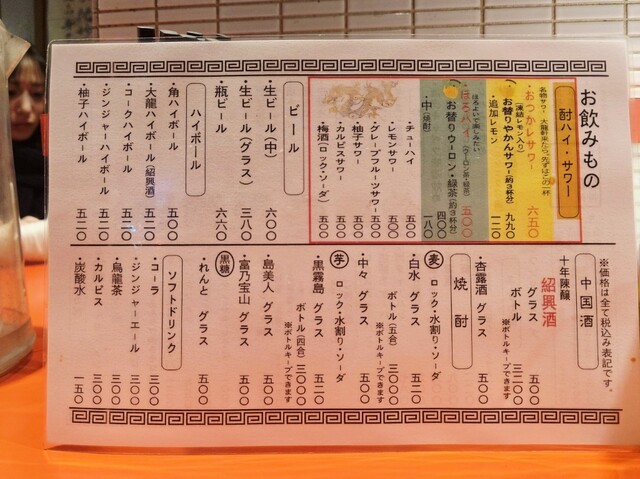 お飲みもの
酎ハイ・サワー
おつかレサワー 六五〇
(凍結レモン入り)
お替りやかんサワー(約3杯分) 九九〇
・追加レモン 一二〇
ほろよいで楽しみたい、
ほろハイ(ウーロン茶・緑茶) 五〇〇
お替りウーロン・緑茶(約3杯分) 四〇〇
・中(焼酎) 一八〇
・チューハイ 五〇〇
・レモンサワー 五〇〇
・グレープフルーツサワー 五〇〇
・柚子サワー 五〇〇
・カルピスサワー 五〇〇
・梅酒(ロック・ソーダ) 五〇〇
ビール
・生ビール(中) 六〇〇
・生ビール(グラス) 三八〇
・瓶ビール 六六〇
ハイボール
・角ハイボール 五〇〇
・大龍ハイボール(紹興酒) 五二〇
・コークハイボール 五二〇
・ジンジャーハイボール 五二〇
・柚子ハイボール 五二〇
※価格は全て税込み表記です。
中国酒
十年陳醸
紹興酒
グラス 五〇〇
ボトル 三二〇〇
※ボトルキープできます
・杏露酒 グラス 五〇〇
焼酎
麦 ロック・水割り・ソーダ
・白水 グラス 五〇〇
ボトル(五合) 三〇〇〇
※ボトルキープできます
・中々 グラス 五〇〇
芋 ロック・水割り・ソーダ
・黒霧島 グラス 五二〇
ボトル(四合) 三〇〇〇
※ボトルキープできます
・島美人 グラス 五〇〇
・富乃宝山 グラス 五〇〇
黒糖
・れんと グラス 五〇〇
ソフトドリンク
・コーラ 三〇〇
・ジンジャーエール 三〇〇
・烏龍茶 三〇〇
・カルピス 三〇〇
・炭酸水 一五〇